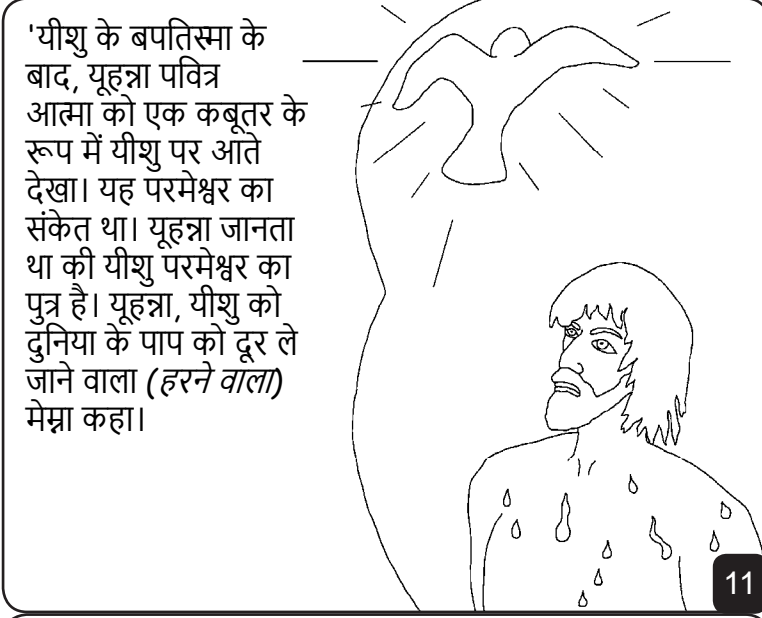 'यीशु के बपतिस्मा के
बाद, यूहन्ना पवित्र
आत्मा को एक कबूतर के
रूप में यीशु पर आते
देखा। यह परमेश्वर का
संकेत था। यूहन्ना जानता
था की यीशु परमेश्वर का
पुत्र है। यूहन्ना, यीशु को
दुनिया के पाप को दूर ले
जाने वाला (हरने वाला)
मेम्ना कहा।
11